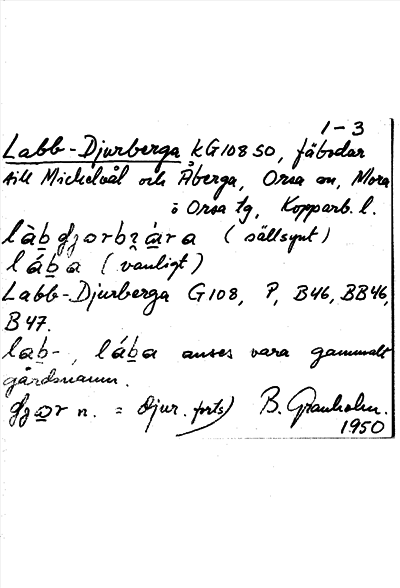 1-3
Labb-Djurberga KG108 SO, fäbodar
till Mickelvål och Åberga, Orsa sn, Mora
o Orsa tg, Kopparb. l.
(sällsynt)
lába (vanligt)
Labb-Djurberga G108, P, B46, BB46,
B47.
lab-, lába anses vara gammalt
gårdsnamn.
n. = djur. forts) B. Granholm.
1950